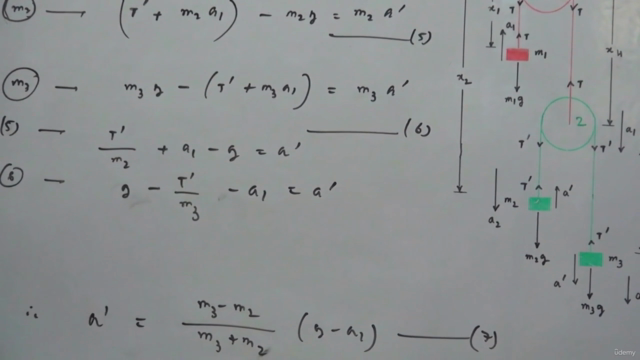 (m2) — (T' + m2 a1) − m2 g = m2 a' —(5)
(m3) — m3 g − (T' + m3 a1) = m3 a' —(6)
(5) — T'/m2 + a1 − g = a'
(6) — g − T'/m3 − a1 = a'
∴ a' = (m3 − m2)/(m3 + m2) (g − a1) —(7)
x1
a1
T
T
T
m1
m1g
x2
T
x4
2
a1
T'
T'
T'
a'
m2
a2
m2g
T'
m3
a'
m3g
a
ûdemy